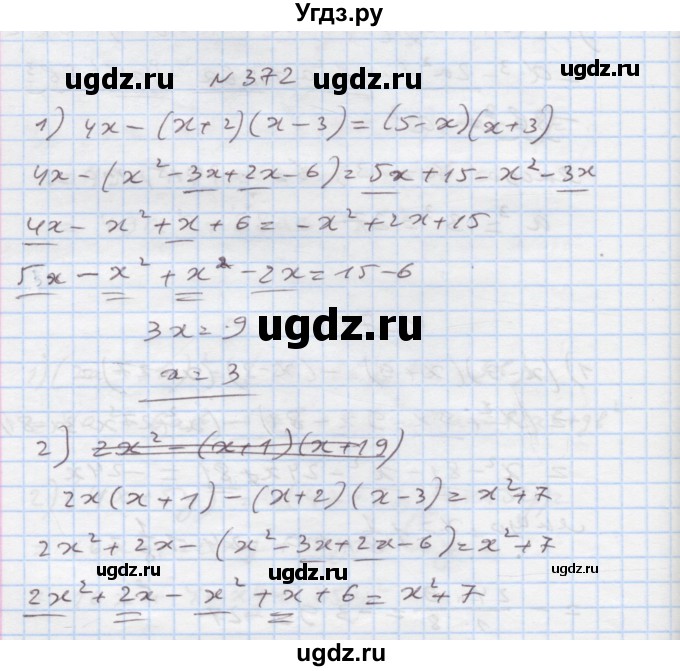 Угдз.ру
ugdz.ru № 372 ugdz.ru
1) 4x - (x+2)(x-3) = (5-x)(x+3)
4x - (x² - 3x + 2x - 6) = 5x + 15 - x² - 3x
4x - x² + x + 6 = -x² + 2x + 15
5x - x² + x² - 2x = 15 - 6
3x = 9
ugdz.ru ugdz.ru
x = 3
2) 2x² - (x+1)(x+19)
2x(x+1) - (x+2)(x-3) = x² + 7
2x² + 2x - (x² - 3x + 2x - 6) = x² + 7
ugdz.ru ugdz.ru
2x² + 2x - x² + x + 6 = x² + 7
ugdz.ru